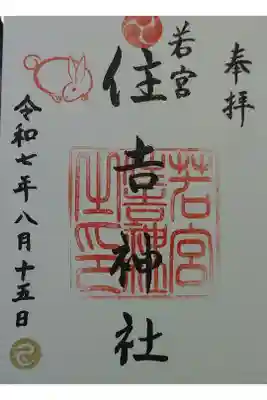 奉拝
若宮
住吉神社
若宮
住吉神社
之印
令和七年八月十五日